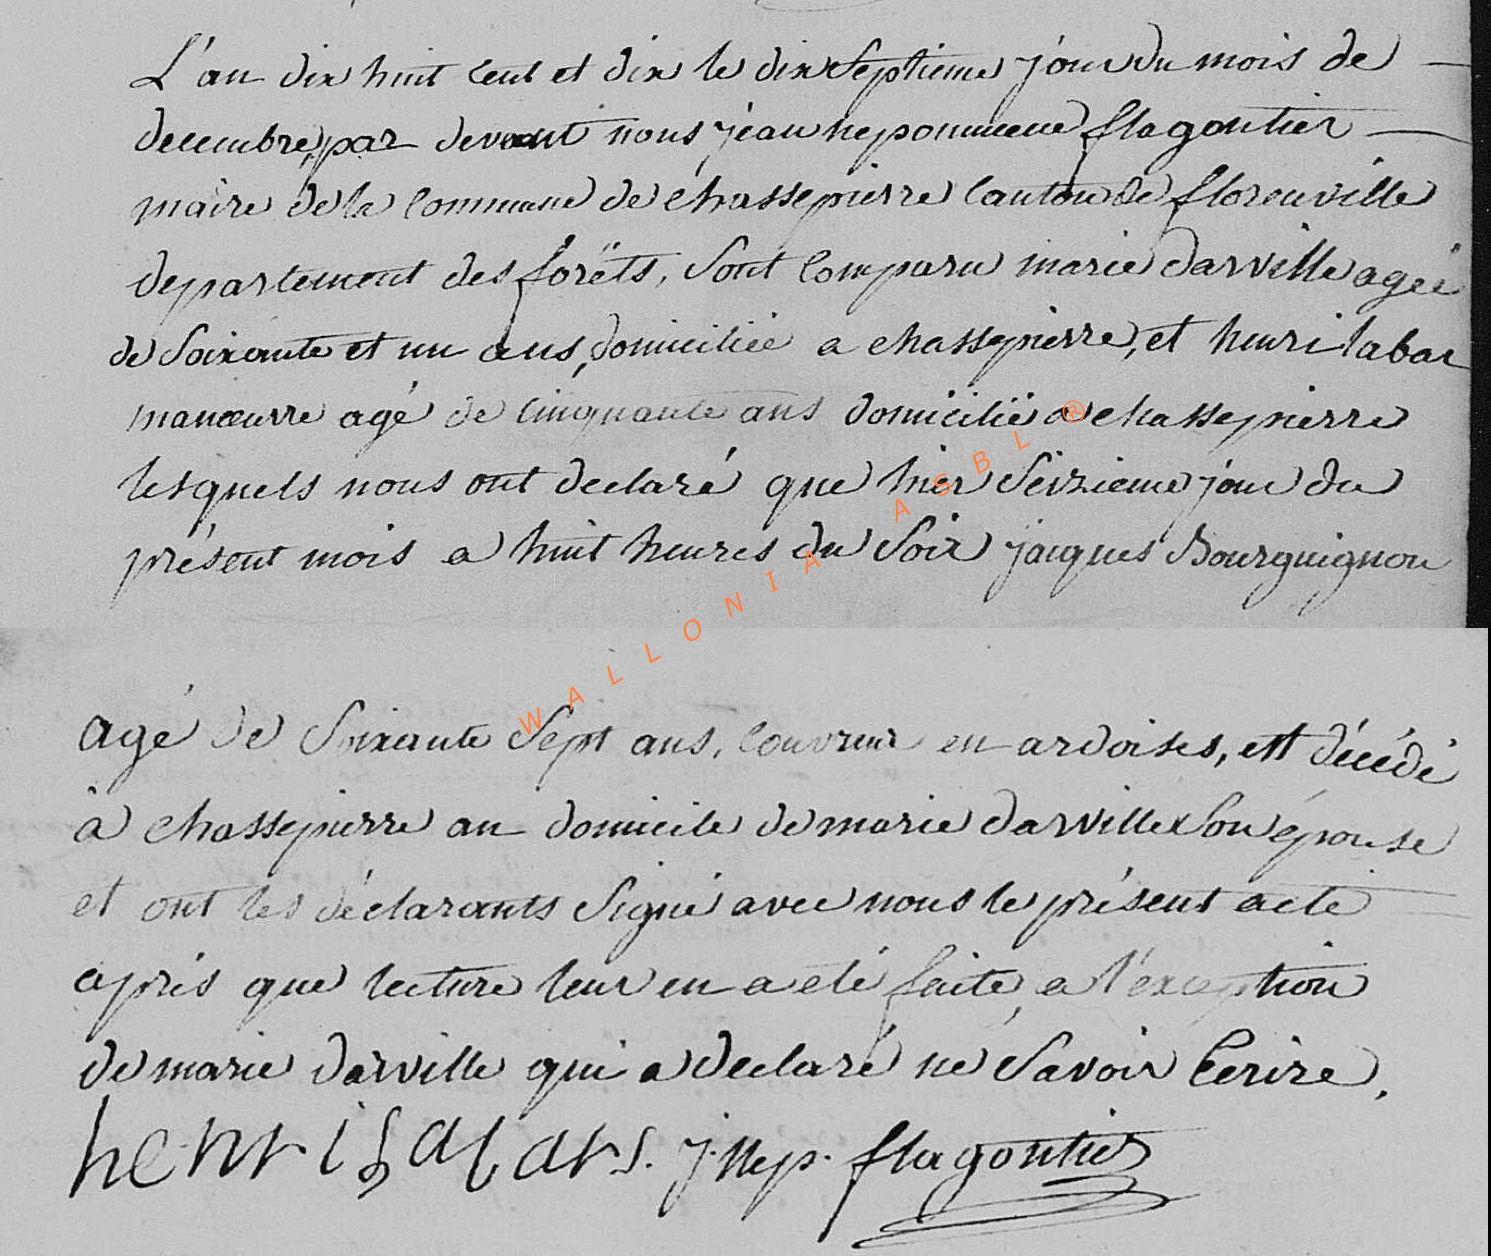 L'an dix huit cent et dix le dix septieme jour du mois de
decembre, par devant nous jean nepomucene flagontier
maire de la commune de chassepierre canton de florenville
departement des forêts, sont comparu marie darville agée
de soixante et un ans, domiciliée a chassepierre, et henri labar
manœuvre agé de cinquante ans domicilié a chassepierre
lesquels nous ont declaré que hier seizieme jour du
présent mois a huit heures du soir jacques Bourguignon
agé de soixante sept ans, couvreur en ardoises, est décédé
à chassepierre au domicile de marie darville son épouse
et ont les déclarants signé avec nous le présent acte
après que lecture leur en a eté faite, a l'exception
de marie darville qui a declaré ne savoir Ecrire.
henri J. nep. flagontier
WALLONIA ASBL ®